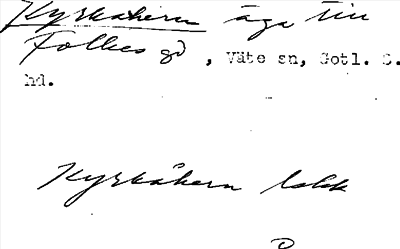 Kyrkåkern äga till
Folkes gd, Väte sn, Gotl. S.
hd.
Kyrkåkern